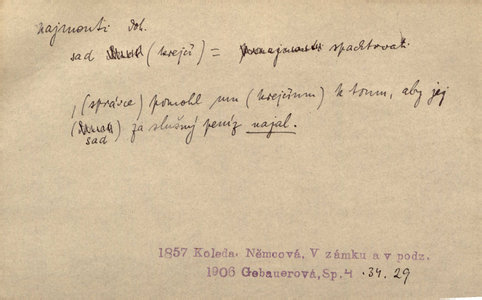 najmouti dok.
sad (krejčí) = spachtovati
, (správce) pomohl mu (krejčímu) k tomu, aby jej
( ) za slušný peníz najal.
sad
1857 Koleda. Němcová, V zámku a v podz.
1906 Gebauerová, Sp.4 .34.29